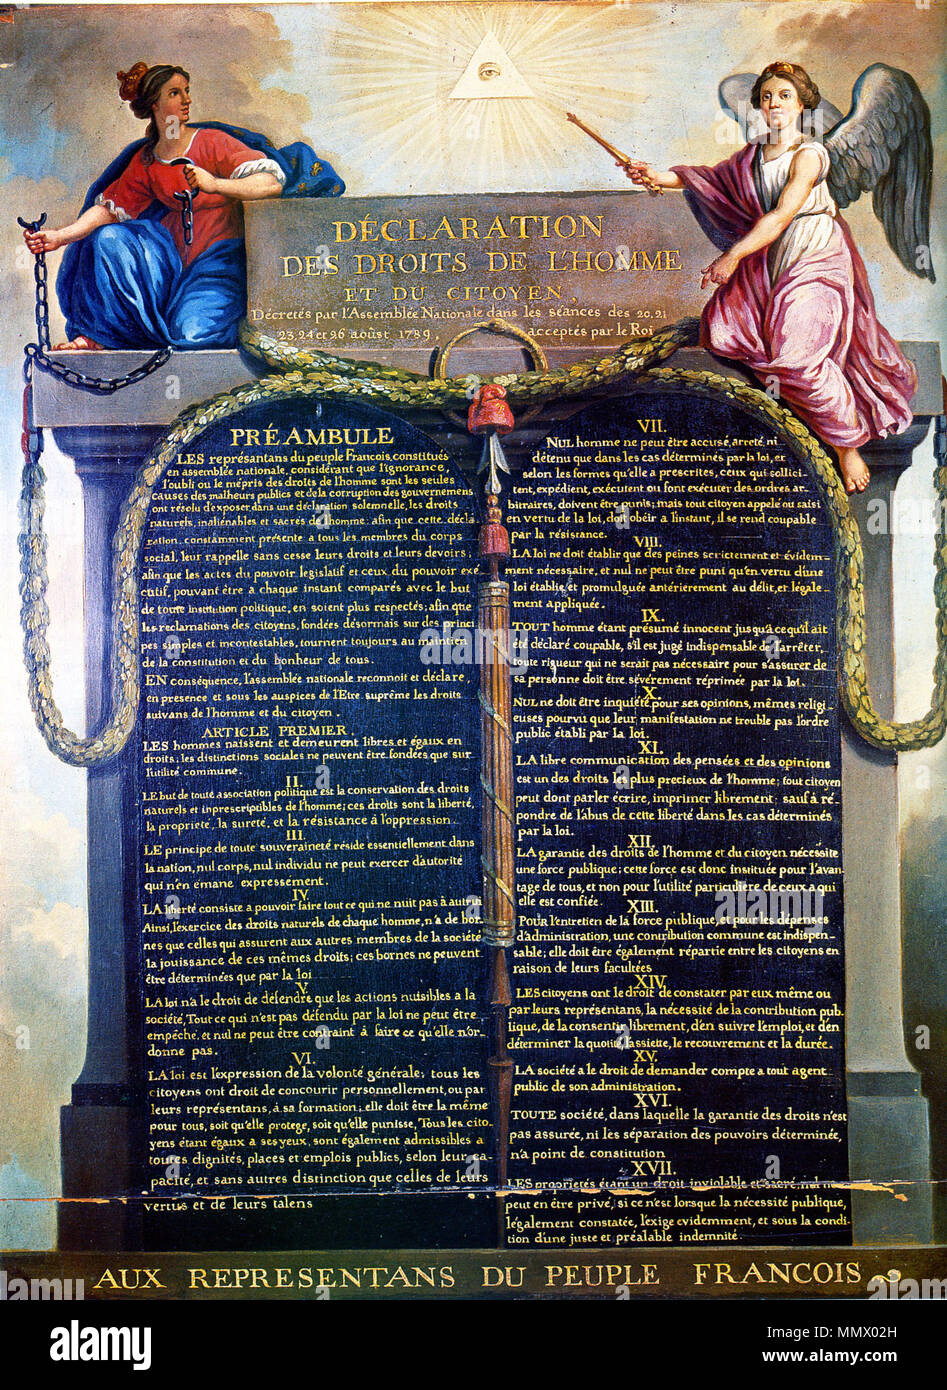 DÉCLARATION
DES DROITS DE L'HOMME
ET DU CITOYEN,
Décretés par l'Assemblée Nationale dans les séances des 20, 21
23, 24 et 26 aoûst 1789, acceptés par le Roi
PRÉAMBULE
LES représantans du peuple Francois, constitués
en assemblée nationale, considérant que l'ignorance,
l'oubli ou le mépris des droits de l'homme sont les seules
causes des malheurs publics et de la corruption des gouvernemens
ont résolu d'exposer dans une déclaration solemnelle, les droits
naturels, inaliénables et sacrés de l'homme; afin que cette décla
ration, constamment présente a tous les membres du corps
social, leur rappelle sans cesse leurs droits et leurs devoirs;
afin que les actes du pouvoir législatif et ceux du pouvoir exé
cutif, pouvant être a chaque instant comparés avec le but
de toute institution politique, en soient plus respectés; afin que
les reclamations des citoyens, fondées désormais sur des princi
pes simples et incontestables, tournent toujours au maintien
de la constitution et du bonheur de tous.
EN conséquence, l'assemblée nationale reconnoit et déclare,
en presence et sous les auspices de l'Etre suprême les droits
suivans de l'homme et du citoyen.
ARTICLE PREMIER.
LES hommes naissent et demeurent libres et égaux en
droits; les distinctions sociales ne peuvent être fondées que sur
l'utilité commune.
II.
LE but de toute association politique est la conservation des droits
naturels et inprescriptibles de l'homme; ces droits sont la liberté,
la propriété, la sureté, et la résistance à l'oppression.
III.
LE principe de toute souveraineté réside essentiellement dans
la nation, nul corps, nul individu ne peut exercer d'autorité
qui n'en émane expressement.
IV.
LA liberté consiste a pouvoir faire tout ce qui ne nuit pas à autrui
Ainsi, l'exercice des droits naturels de chaque homme, n'a de bor-
nes que celles qui assurent aux autres membres de la société
la jouissance de ces mêmes droits; ces bornes ne peuvent
être déterminées que par la loi
V.
LA loi n'a le droit de défendre que les actions nuisibles a la
société, Tout ce qui n'est pas défendu par la loi ne peut être
empêché, et nul ne peut être contraint à faire ce qu'elle n'or-
donne pas.
VI.
LA loi est l'expression de la volonté générale; tous les
citoyens ont droit de concourir personnellement, ou par
leurs représentans, à sa formation; elle doit être la même
pour tous, soit qu'elle protege, soit qu'elle punisse, Tous les cito-
yens étant égaux a ses yeux, sont également admissibles a
toutes dignités, places et emplois publics, selon leur ca-
pacité, et sans autres distinction que celles de leurs
vertus et de leurs talens
VII.
NUL homme ne peut être accusé, arreté, ni
détenu que dans les cas déterminés par la loi, et
selon les formes qu'elle a prescrites, ceux qui sollici-
tent, expédient, exécutent ou font exécuter des ordres ar-
bitraires, doivent être punis; mais tout citoyen appelé ou saisi
en vertu de la loi, doit obéir a l'instant, il se rend coupable
par la résistance.
VIII.
LA loi ne doit établir que des peines strictement et évidem-
ment nécessaire, et nul ne peut être puni qu'en vertu d'une
loi établie et promulguée antérierement au délit, et légale-
ment appliquée.
IX.
TOUT homme étant présumé innocent jusqu'a ce qu'il ait
été déclaré coupable, s'il est jugé indispensable de l'arrêter,
toute rigueur qui ne serait pas nécessaire pour s'assurer de
sa personne doit être sévèrement réprimée par la loi.
X.
NUL ne doit être inquiété pour ses opinions, mêmes religi-
euses pourvu que leur manifestation ne trouble pas l'ordre
public établi par la loi.
XI.
LA libre communication des pensées et des opinions
est un des droits les plus precieux de l'homme; tout citoyen
peut dont parler écrire, imprimer librement; sauf à ré-
pondre de l'abus de cette liberté dans les cas déterminés
par la loi.
XII.
LA garantie des droits de l'homme et du citoyen nécessite
une force publique; cette force est donc instituée pour l'avan-
tage de tous, et non pour l'utilité particuliere de ceux a qui
elle est confiée.
XIII.
POUR l'entretien de la force publique, et pour les dépenses
d'administration, une contribution commune est indispen-
sable; elle doit être également répartie entre les citoyens en
raison de leurs facultées
XIV.
LES citoyens ont le droit de constater par eux même ou
par leurs représentans, la nécessité de la contribution pub-
lique, de la consentir librement, d'en suivre l'emploi, et d'en
déterminer la quotité, l'assiette, le recouvrement et la durée.
XV.
LA société a le droit de demander compte a tout agent
public de son administration.
XVI.
TOUTE société, dans laquelle la garantie des droits n'est
pas assurée, ni les séparation des pouvoirs déterminée,
n'a point de constitution
XVII.
LES proprietés étant un droit inviolable et sacré, nul ne
peut en être privé, si ce n'est lorsque la nécessité publique,
légalement constatée, l'exige evidemment, et sous la condi-
tion d'une juste et préalable indemnité.
AUX REPRESENTANS DU PEUPLE FRANCOIS
alamy
Image ID: MMX02H
www.alamy.com